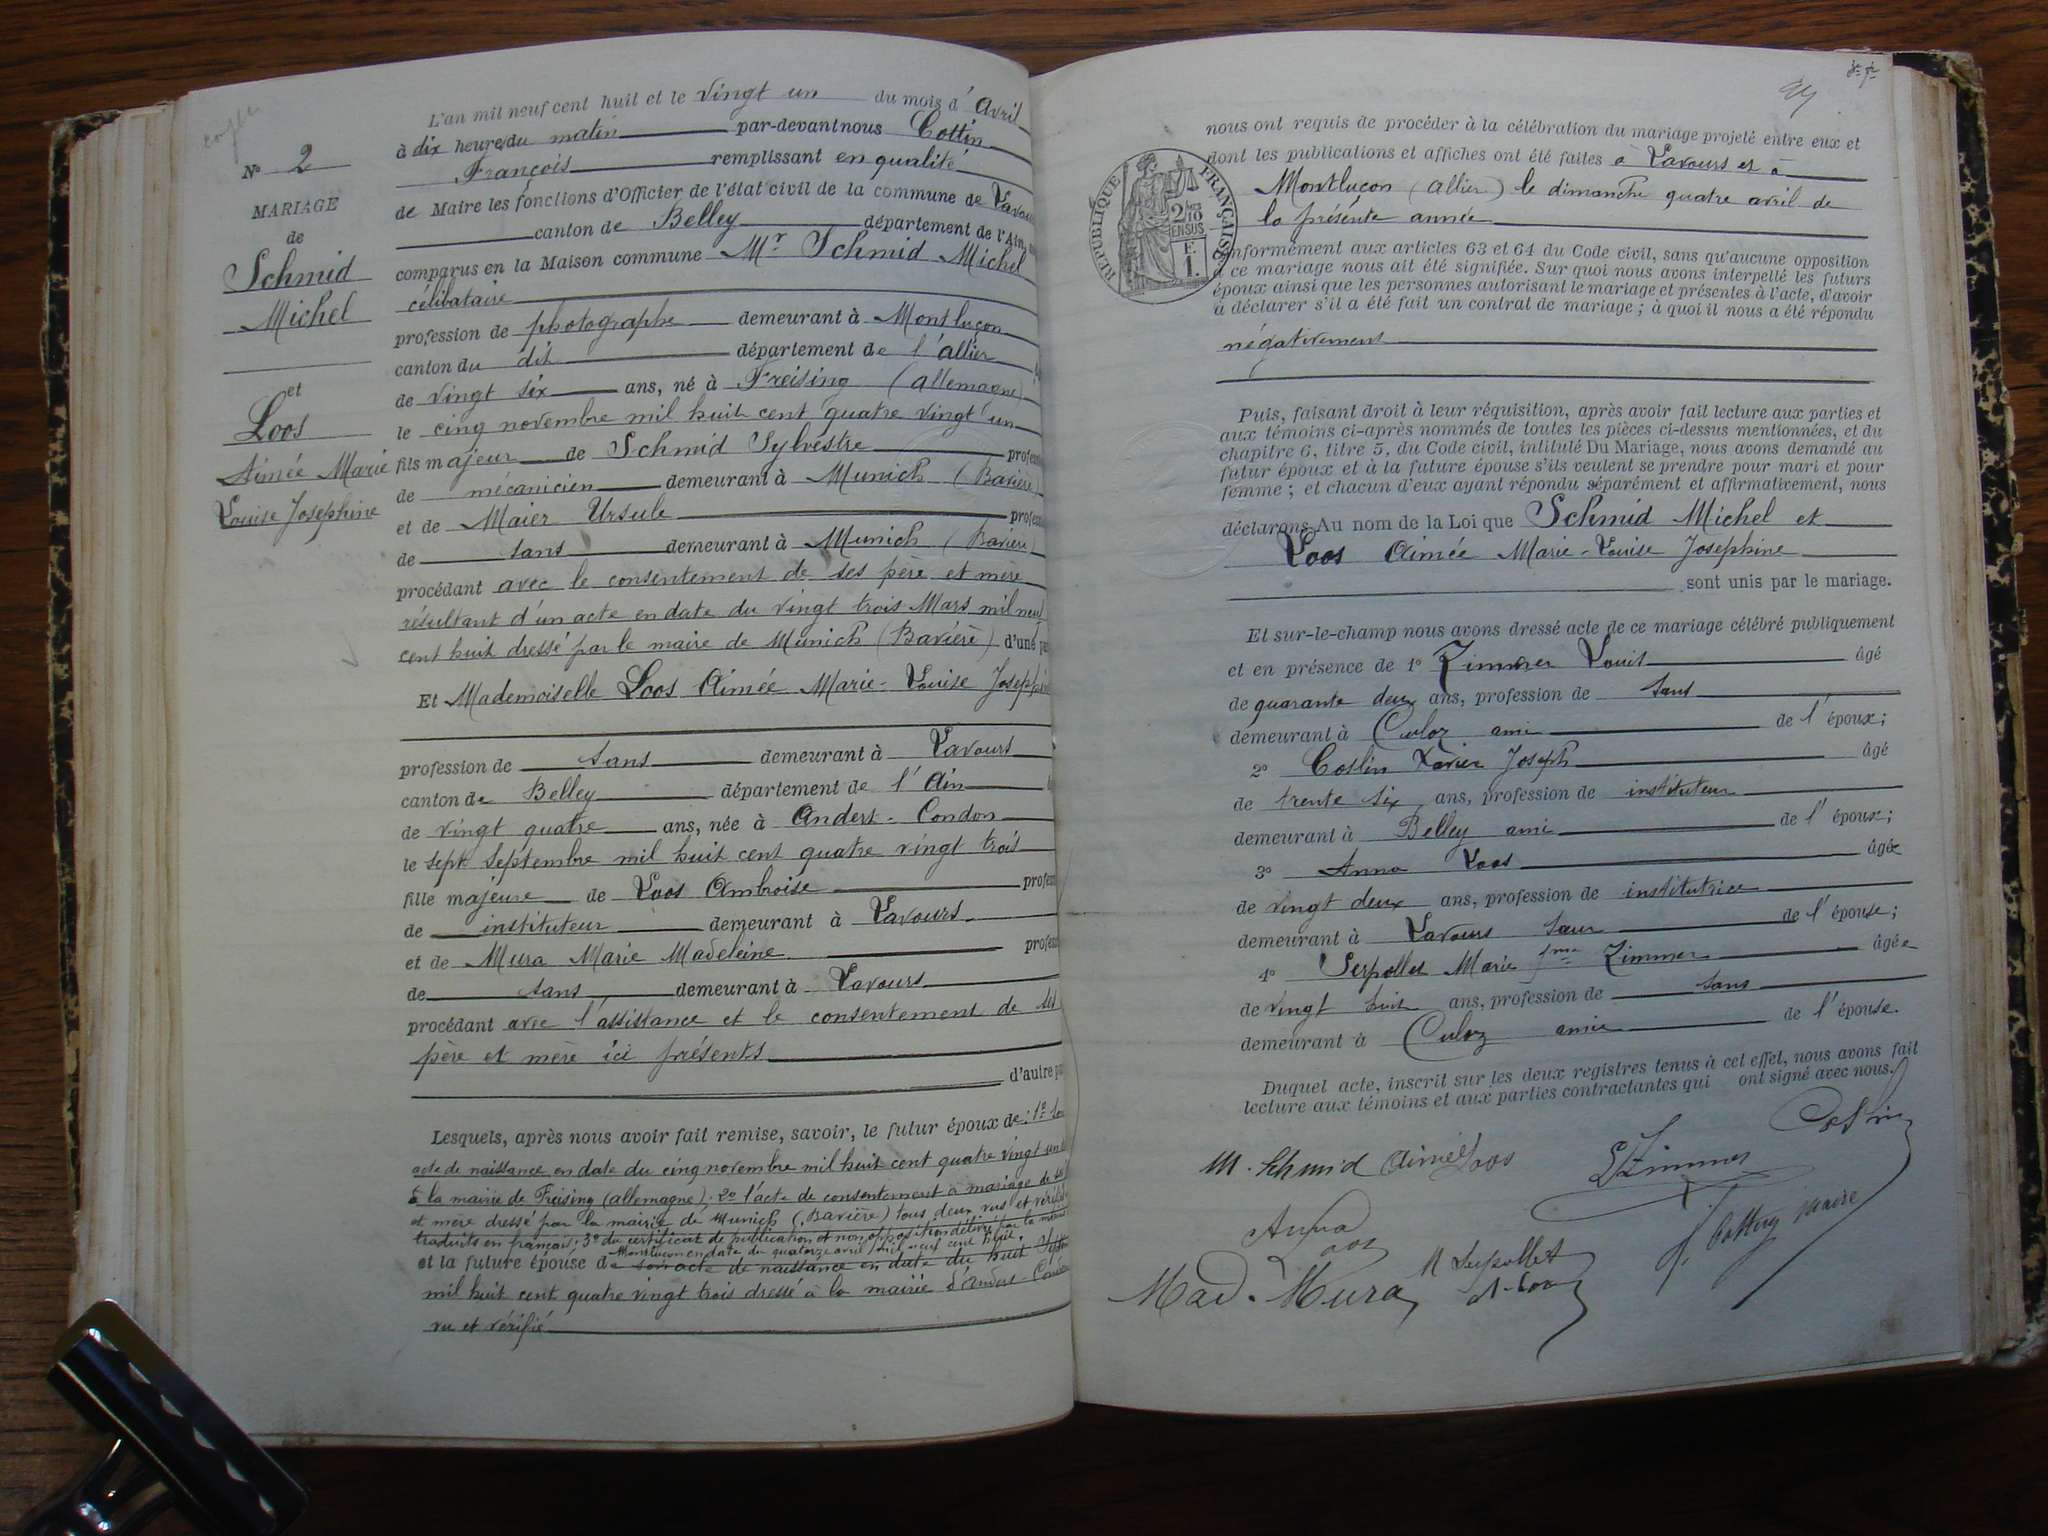 copie
N° 2
MARIAGE
de
Schmid
Michel
et
Loos
Aimée Marie
Louise Josephine
L'an mil neuf cent huit et le vingt un du mois d'Avril
à dix heures du matin par-devant nous Cottin
François remplissant en qualité
de Maire les fonctions d'Officier de l'état civil de la commune de Lavou
canton de Belley département de l'Ain,
comparus en la Maison commune Mr Schmid Michel
célibataire
profession de photographe demeurant à Montluçon
canton du dit département de l'allier
de vingt six ans, né à Freising (allemagne)
le cinq novembre mil huit cent quatre vingt un
fils majeur de Schmid Sylvestre profess
de mécanicien demeurant à Munich (Bavière)
et de Maier Ursule profess
de sans demeurant à Munich (Bavière)
procédant avec le consentement de ses père et mère
résultant d'un acte en date du vingt trois Mars mil neuf
cent huit dressé par le maire de Munich (Bavière) d'une pa
Et Mademoiselle Loos Aimée Marie-Louise Joseph
profession de sans demeurant à Lavours
canton de Belley département de l'Ain
de vingt quatre ans, née à Andert-Condon
le sept Septembre mil huit cent quatre vingt trois
fille majeure de Loos Ambroise profess
de instituteur demeurant à Lavours
et de Mura Marie Madeleine profess
de sans demeurant à Lavours
procédant avec l'assistance et le consentement de ses
père et mère ici présents
d'autre pa
Lesquels, après nous avoir fait remise, savoir, le futur époux de: 1° son
acte de naissance en date du cinq novembre mil huit cent quatre vingt un
à la mairie de Freising (allemagne). 2° l'acte de consentement à mariage de ses
et mère dressé par la mairie de Munich (Bavière) tous deux vus et vérifiés
traduits en français; 3° du certificat de publication et non opposition délivré par la mairie
Montluçon en date du quatorze avril mil neuf cent huit.
et la future épouse de son acte de naissance en date du huit Septe
mil huit cent quatre vingt trois dressé à la mairie d'Andert-Condon
vu et vérifié
nous ont requis de procéder à la célébration du mariage projeté entre eux et
dont les publications et affiches ont été faites à Lavours et à
Montluçon (allier) le dimanche quatre avril de
la présente année
RÉPUBLIQUE FRANÇAISE
2/10
EN SUS
F.
1.
conformément aux articles 63 et 64 du Code civil, sans qu'aucune opposition
à ce mariage nous ait été signifiée. Sur quoi nous avons interpellé les futurs
époux ainsi que les personnes autorisant le mariage et présentes à l'acte, d'avoir
à déclarer s'il a été fait un contrat de mariage; à quoi il nous a été répondu
négativement
Puis, faisant droit à leur réquisition, après avoir fait lecture aux parties et
aux témoins ci-après nommés de toutes les pièces ci-dessus mentionnées, et du
chapitre 6, titre 5, du Code civil, intitulé Du Mariage, nous avons demandé au
futur époux et à la future épouse s'ils veulent se prendre pour mari et pour
femme; et chacun d'eux ayant répondu séparément et affirmativement, nous
déclarons Au nom de la Loi que Schmid Michel et
Loos Aimée Marie-Louise Josephine
sont unis par le mariage.
Et sur-le-champ nous avons dressé acte de ce mariage célébré publiquement
et en présence de 1° Zimmer Louis âgé
de quarante deux ans, profession de sans
demeurant à Culoz ami de l'époux;
2° Coslin Xavier Joseph âgé
de trente six ans, profession de instituteur
demeurant à Belley ami de l'époux;
3° Anna Loos âgée
de vingt deux ans, profession de institutrice
demeurant à Lavours sœur de l'épouse;
4° Serpollet Marie fme Zimmer âgée
de vingt huit ans, profession de sans
demeurant à Culoz amie de l'épouse.
Duquel acte, inscrit sur les deux registres tenus à cet effet, nous avons fait
lecture aux témoins et aux parties contractantes qui ont signé avec nous.
M. Schmid Aimée Loos L Zimmer Coslin
Anna
Loos
Mad. Mura M Serpollet
A. Loos
f. Cottin maire